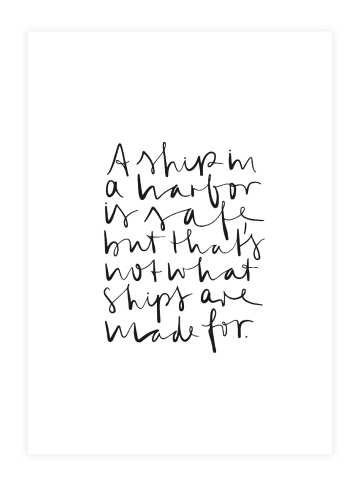 A ship in
a harbor
is safe,
but that's
not what
ships are
made for.